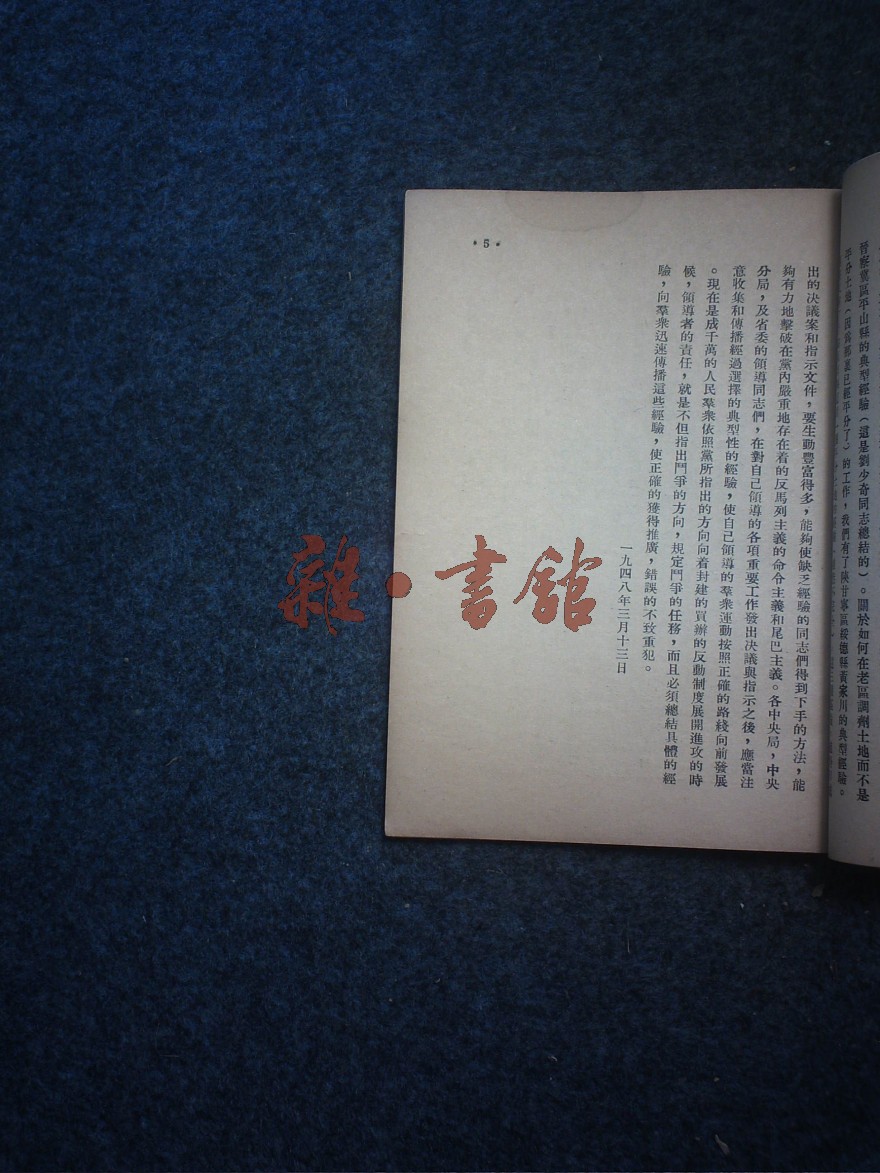 晉察冀區平山縣的典型經驗（這是劉少奇同志總結的）。關於如何在老區調劑土地而不是
平分土地（因爲那裏已經平分了）的工作，我們有了陝甘寧區綏德縣黃家川的典型經驗。
出的決議案和指示文件，要生動豐富得多，能夠使缺乏經驗的同志們得到下手的方法，能
夠有力地擊破在黨內嚴重地存在着的反馬列主義的命令主義和尾巴主義。各中央局，中央
分局，及省委的領導同志們，在對自己領導的各項重要工作發出決議與指示之後，應當注
意收集和傳播經過選擇的典型性的經驗，使自己領導的羣衆運動按照正確的路綫向前發展
。現在是成千萬的人民羣衆依照黨所指出的方向向着封建的買辦的反動制度展開進攻的時
候，領導者的責任，就是不但指出鬥爭的方向，規定鬥爭的任務，而且必須總結具體的經
驗，向羣衆迅速傳播這些經驗，使正確的獲得推廣，錯誤的不致重犯。
一九四八年三月十三日
•5•
雜·書館